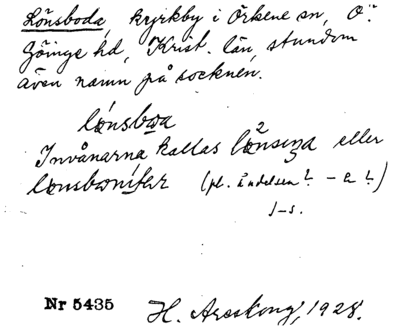 Lönsboda, kyrkby i Örkene sn, Ö.
Göinge hd, Krist. län, stundom
även namn på socknen.
lónsboa
Invånarna kallas lönsεŋa eller
lønsbonífar (pl. ändelsen? - a?)
J-s.
Nr 5435
H. Areskog, 1928.